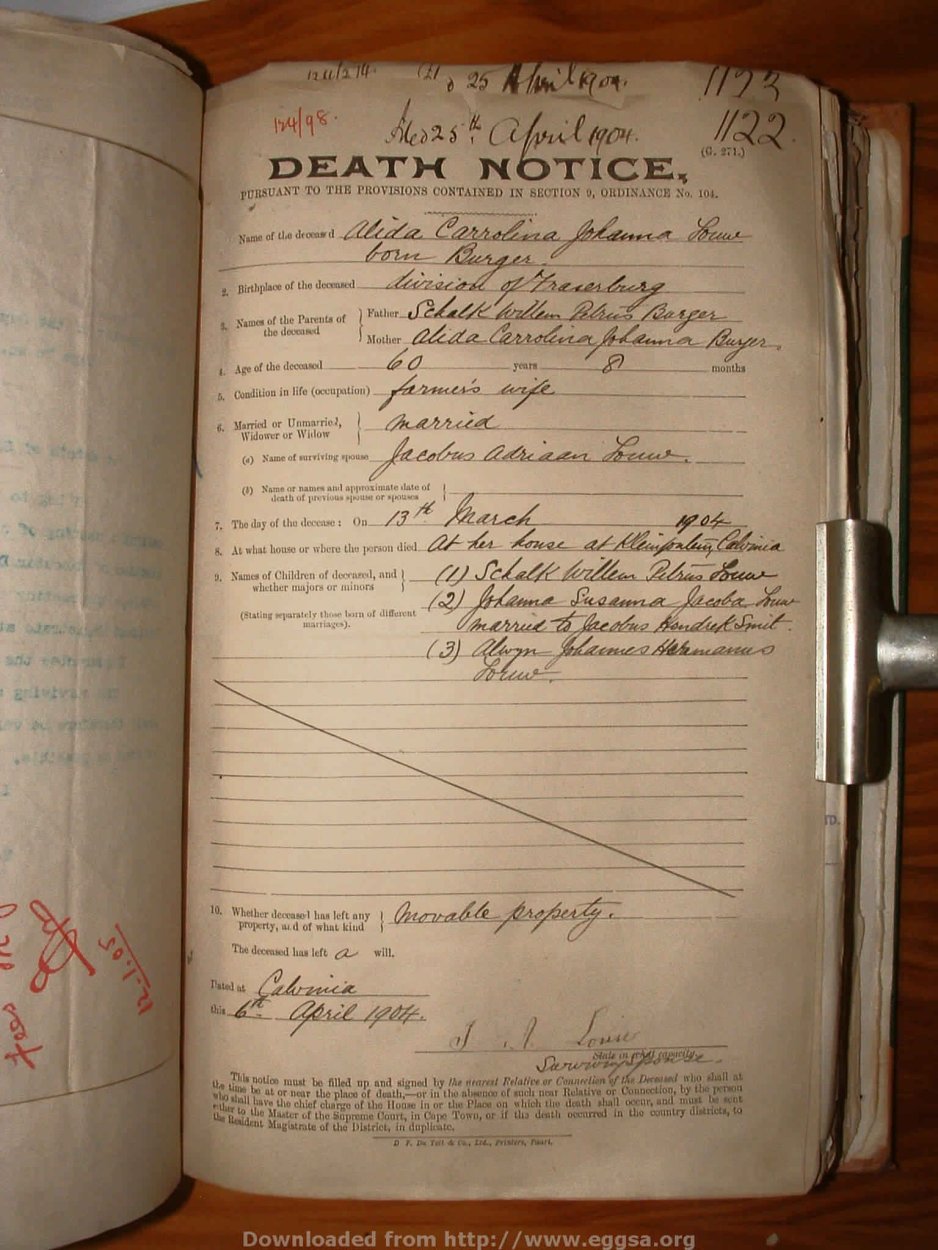 25 April 1904.
1123
124/98.
Filed 25th April 1904.
1122
(G. 271.)
DEATH NOTICE,
PURSUANT TO THE PROVISIONS CONTAINED IN SECTION 9, ORDINANCE No. 104.
Name of the deceased Alida Carrolina Johanna Louw
born Burger.
2. Birthplace of the deceased division of Fraserburg
3. Names of the Parents of the deceased } Father Schalk Willem Petrus Burger
Mother Alida Carrolina Johanna Burger.
4. Age of the deceased 60 years 8 months
5. Condition in life (occupation) farmer's wife
6. Married or Unmarried, Widower or Widow } married
(a) Name of surviving spouse Jacobus Adriaan Louw.
(b) Name or names and approximate date of death of previous spouse or spouses }
7. The day of the decease: On 13th March 1904
8. At what house or where the person died At her house at Kleinfontein, Calvinia
9. Names of Children of deceased, and whether majors or minors } (1) Schalk Willem Petrus Louw
(Stating separately those born of different marriages). (2) Johanna Susanna Jacoba Louw
married to Jacobus Hendrek Smit.
(3) Alwyn Johannes Hermanus
Louw.
10. Whether deceased has left any property, and of what kind } Movable property.
The deceased has left a will.
Dated at Calvinia
this 6th April 1904.
J. A. Louw
State in what capacity
Surviving spouse.
This notice must be filled up and signed by the nearest Relative or Connection of the Deceased who shall at
the time be at or near the place of death,—or in the absence of such near Relative or Connection, by the person
who shall have the chief charge of the House in or the Place on which the death shall occur, and must be sent
either to the Master of the Supreme Court, in Cape Town, or if the death occurred in the country districts, to
the Resident Magistrate of the District, in duplicate.
D. F. Du Toit & Co., Ltd., Printers, Paarl.
12.1.05
Downloaded from http://www.eggsa.org